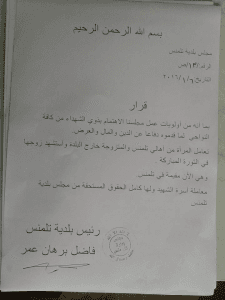 بسم الله الرحمن الرحيم
مجلس بلدية تلمنس
الرقم /١٣/ص
التاريخ ٢٠١٦/١/٦
قرار
بما انه من اولويات عمل مجلسنا الاهتمام بذوي الشهداء من كافة
النواحي لما قدموه دفاعا عن الدين والمال والعرض.
تعامل المرأة من أهالي تلمنس والمتزوجة خارج البلده واستشهد زوجها
في الثورة المباركة
وهي الآن مقيمة في تلمنس
معاملة أسرة الشهيد ولها كامل الحقوق المستحقه من مجلس بلدية
تلمنس
رئيس بلدية تلمنس
فاضل برهان عمر